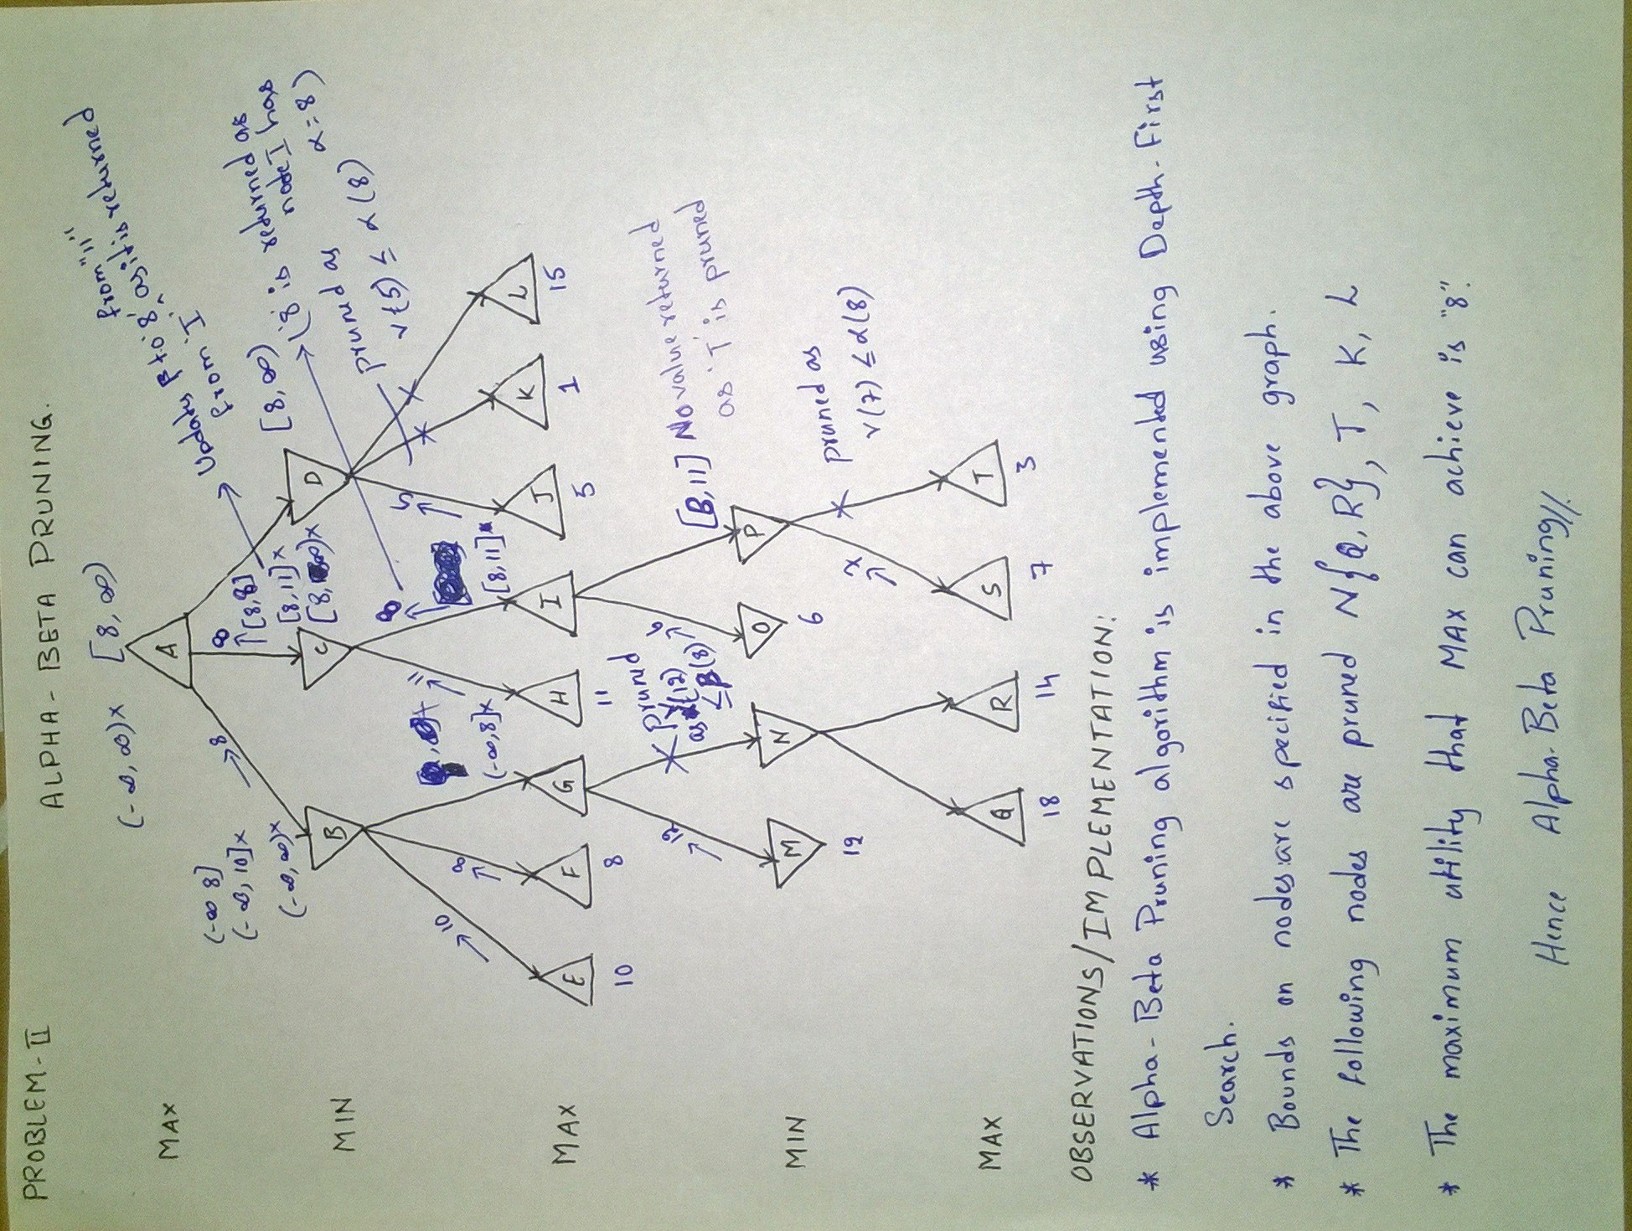 PROBLEM-II
ALPHA-BETA PRUNING.
(-∞, ∞)x [8, ∞)
MAX
A
from "11"
Updates β to '8' as it is returned
from 'I'
(-∞ 8]
(-∞, 10]x
(-∞, ∞)x
→8
8
[8,8]
[8,11]x
[8, ∞)x
[8, ∞)
('8' is returned as
node I has
α=8)
MIN
B
C
D
pruned as
v(5) ≤ α(8)
→10
→8
(-∞,8]x
→11
8
[8,11]x
→5
MAX
E
F
G
H
I
J
K
L
10
8
11
5
1
15
→12
pruned
as v(12)
≤ β(8)
→6
[8,11] No value returned
as 'T' is pruned
MIN
M
N
O
P
12
6
→7
pruned as
v(7) ≤ α(8)
MAX
Q
R
S
T
18
14
7
3
OBSERVATIONS/IMPLEMENTATION:
* Alpha-Beta Pruning algorithm is implemented using Depth-First
Search.
* Bounds on nodes are specified in the above graph.
* The following nodes are pruned N{Q,R}, T, K, L
* The maximum utility that MAX can achieve is "8".
Hence Alpha-Beta Pruning//.